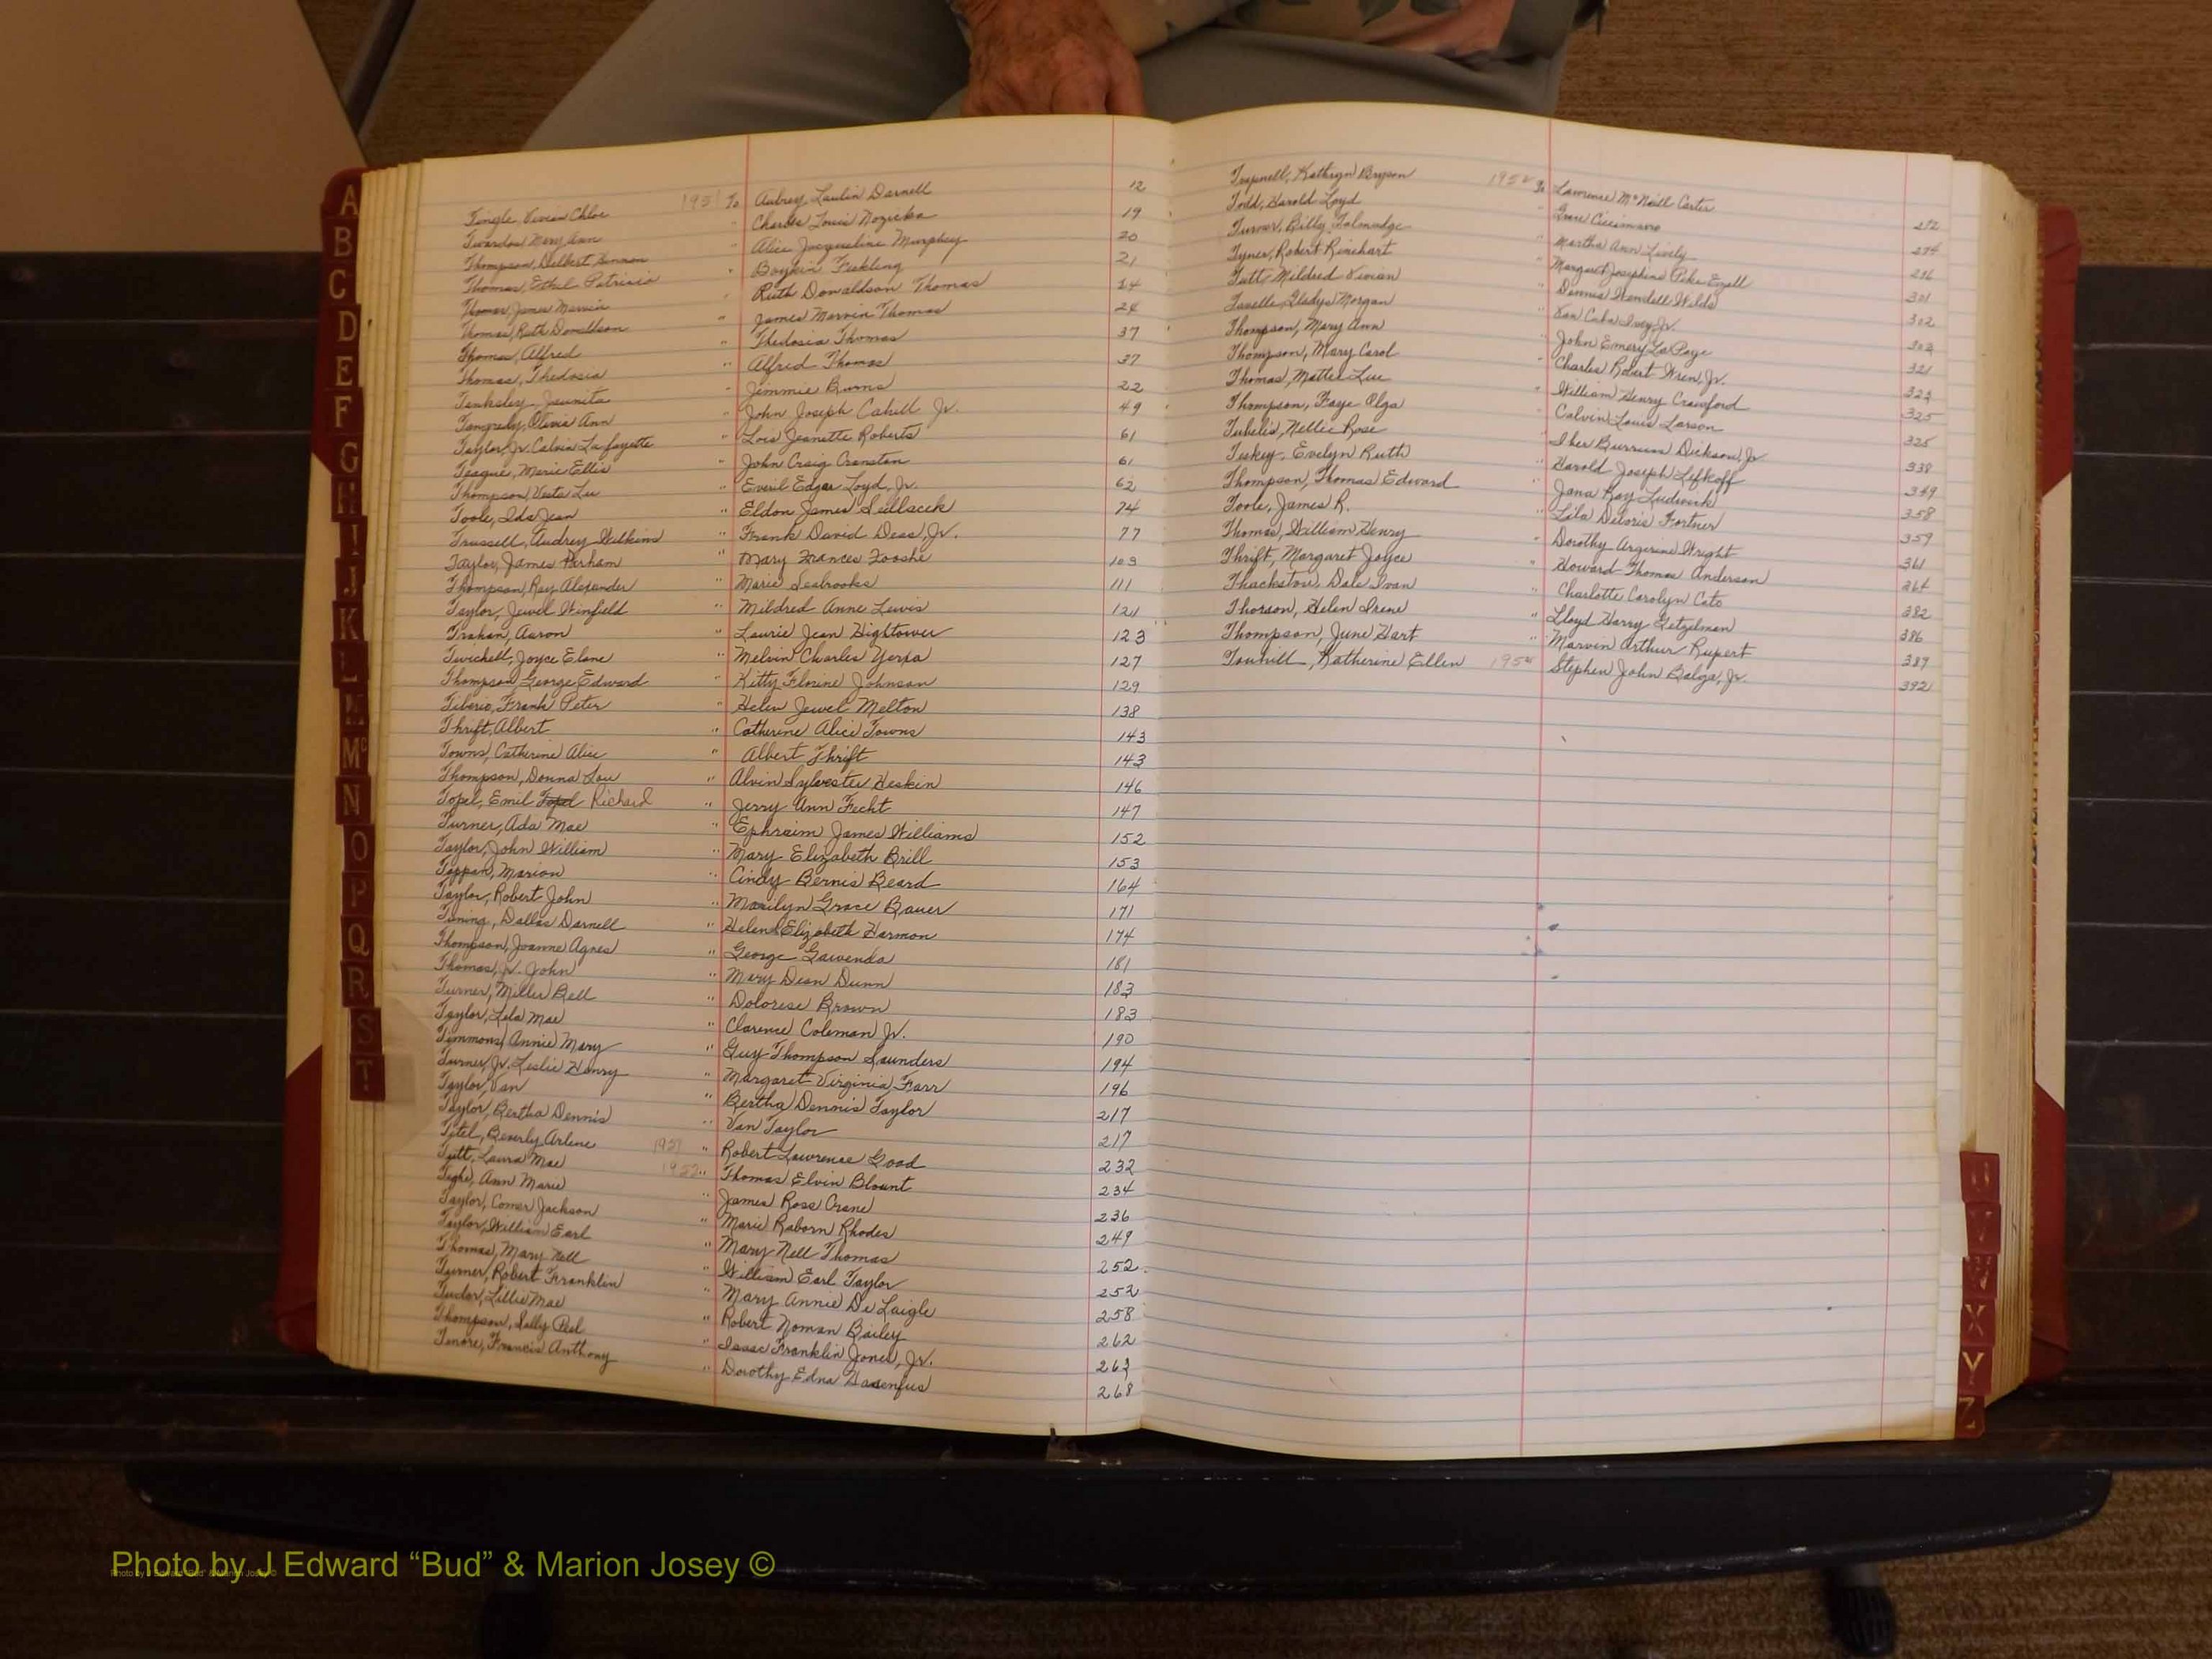 A
B
C
D
E
F
G
H
I
J
K
L
M
Mc
N
O
P
Q
R
S
T
Tingle, Vivian Chloe 1951 To Aubrey Laulin Darnell 12
Twardou Mary Ann " Charles Louis Nozicka 19
Thompson, Delbert " Alice Jacqueline Murphey 20
Thomas, Ethel Patricia " Boykin Fickling 21
Thomas, James Marvin " Ruth Donaldson Thomas 24
Thomas, Ruth Donaldson " James Marvin Thomas 24
Thomas, Alfred " Thedosia Thomas 37
Thomas, Thedosia " Alfred Thomas 37
Tenksley, Jaunita " Jimmie Burns 22
Tangredy, Olivia Ann " John Joseph Cahill Jr. 49
Taylor, Jr. Calvin La fayette " Lois Jeanette Roberts 61
Teague, Marie Ellis " John Craig Cranston 61
Thompson, Vesta Lee " Everil Edgar Loyd, Jr. 62
Toole, Ida Jean " Eldon James 74
Trussell, Audrey Wilkins " Frank David Dess, Jr. 77
Taylor, James Perham " Mary Frances Fooshe 109
Thompson, Ray Alexander " Marie Seabrooks 111
Taylor, Jewel Winfield " Mildred Anne Lewis 121
Trahan, Aaron " Laurie Jean Hightower 123
Twichell, Joyce Elane " Melvin Charles Yerxa 127
Thompson George Edward " Kitty Florine Johnson 129
Tiberio, Frank Peter " Helen Jewel Melton 138
Thrift, Albert " Catherine Alice Towns 143
Towns, Catherine Alice " Albert Thrift 143
Thompson, Donna Lou " Alvin Sylvester Heskin 146
Topel, Emil Topel Richard " Jerry Ann Fecht 147
Turner, Ada Mae " Ephraim James Williams 152
Taylor, John William " Mary Elizabeth Brill 153
Tappan, Marion " Cindy Bernis Beard 164
Taylor, Robert John " Marilyn Grace Bauer 171
Tuning, Dallas Darnell " Helen Elizabeth Harmon 174
Thompson, Joanne Agnes " George Gawenda 181
Thomas, Jr. John " Mary Dean Dunn 183
Turner, Miller Bell " Dolorese Brown 183
Taylor, Lela Mae " Clarence Coleman Jr. 190
Timmons, Annie Mary " Guy Thompson Saunders 194
Turner, Jr. Leslie Henry " Margaret Virginia Farr 196
Taylor, Van " Bertha Dennis Taylor 217
Taylor, Bertha Dennis " Van Taylor 217
Titel, Beverly Arlene 1951 " Robert Lawrence Good 232
Tutt, Laura Mae 1952 " Thomas Elvin Blount 234
Tighe, Ann Marie " James Ross Crane 236
Taylor, Comer Jackson " Marie Raborn Rhodes 249
Taylor, William Earl " Mary Nell Thomas 252
Thomas, Mary Nell " William Earl Taylor 252
Turner, Robert Franklin " Mary Annie De Laigle 258
Tudor, Lillie Mae " Robert Noman Bailey 262
Thompson, Sally Peel " Isaac Franklin Jones, Jr. 263
Tenore, Francis Anthony " Dorothy Edna Hasenfus 268
Trapnell, Kathryn Bryson 1952 To Lawrence McNeill Carter 272
Todd, Harold Loyd " Grace Ciccimarro 274
Turner, Billy Talmadge " Martha Ann Lively 286
Tyner, Robert Rinehart " Margaret Josephine Pike Ezell 301
Tutt, Mildred Vivian " Dennis Wendell Wilds 302
Taselle, Gladys Morgan " Van Cuba Ivey, Jr. 303
Thompson, Mary Ann " John Emery La Page 321
Thompson, Mary Carol " Charles Robert Wren, Jr. 323
Thomas, Mattie Lue " William Henry Crawford 325
Thompson, Faye Olga " Calvin Louis Larson 325
Tubelis, Nellie Rose " Iber Burrum Dickson, Jr 338
Tuskey, Evelyn Ruth " Harold Joseph Lefkoff 349
Thompson, Thomas Edward " Jana Ray Ludwick 358
Toole, James R. " Lila Deloris Fortner 359
Thomas, William Henry " Dorothy Argerine Wright 361
Thrift, Margaret Joyce " Howard Thomas Anderson 364
Thackston, Dale Ivan " Charlotte Carolyn Cato 382
Thorson, Helen Irene " Lloyd Harry Getzelman 386
Thompson, June Hart " Marvin Arthur Rupert 387
Touhill, Katherine Ellen 1952 " Stephen John Balga, Jr. 392
U
V
W
X
Y
Z
Photo by J Edward “Bud” & Marion Josey ©
Photo by J Edward "Bud" & Marion Josey ©